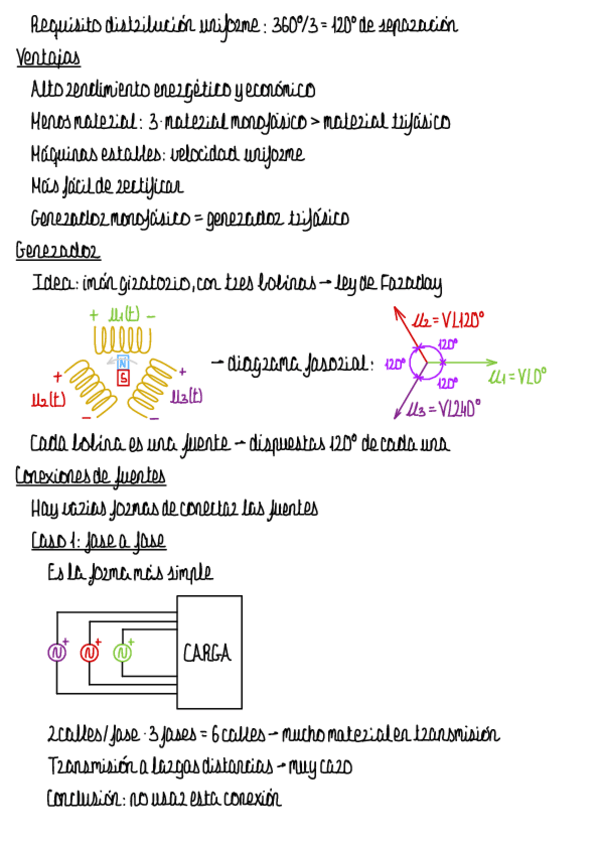 Requisito distribución uniforme: 360º/3 = 120º de separación
Ventajas
Alto rendimiento energético y económico
Menos material: 3·material monofásico > material trifásico
Máquinas estables: velocidad uniforme
Más fácil de rectificar
Generador monofásico = generador trifásico
Generador
Idea: imán giratorio, con tres bobinas → ley de Faraday
+ μ₁(t) −
N
S
+
μ₂(t)
−
+
μ₃(t)
−
→ diagrama fasorial:
μ₂ = V∟120º
120º
120º
120º
μ₁ = V∟0º
μ₃ = V∟240º
Cada bobina es una fuente → dispuestas 120º de cada una
Conexiones de fuentes
Hay varias formas de conectar las fuentes
Caso 1: fase a fase
Es la forma más simple
+ + +
CARGA
2 cables/fase · 3 fases = 6 cables → mucho material en transmisión
Transmisión a largas distancias → muy caro
Conclusión: no usar esta conexión